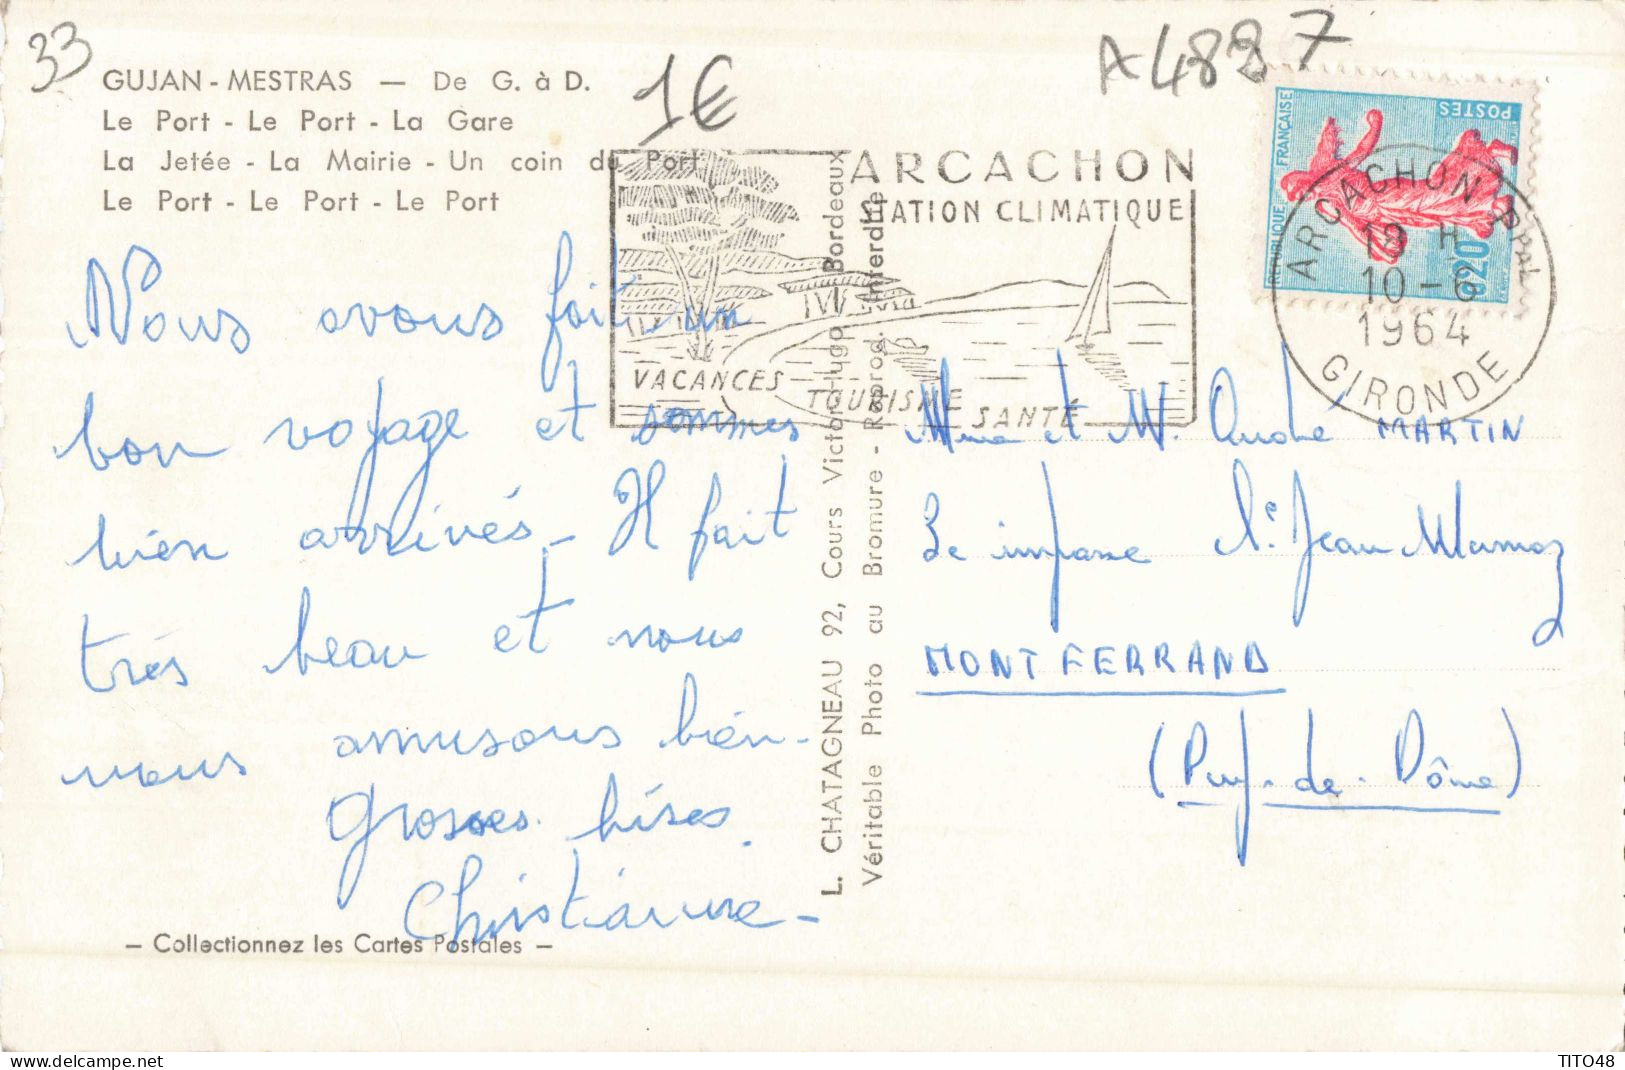 33
GUJAN-MESTRAS — De G. à D.
Le Port - Le Port - La Gare
La Jetée - La Mairie - Un coin du Port
Le Port - Le Port - Le Port
1€
A4887
ARCACHON
STATION CLIMATIQUE
VACANCES
TOURISME
SANTÉ
RÉPUBLIQUE FRANÇAISE
POSTES
0,20
ARCACHON PPAL
18 H
10-6
1964
GIRONDE
Nous avons fait un
bon voyage et sommes
bien arrivés - Il fait
très beau et nous
nous amusons bien -
Grosses bises.
Christianne -
— Collectionnez les Cartes Postales —
L. CHATAGNEAU 92, Cours Victor-Hugo Bordeaux
Véritable Photo au Bromure - Reprod. Interdite
Mme et M. André MARTIN
3e impasse St. Jean Marmoz
MONTFERRAND
(Puy-de-Dôme)
TITO48